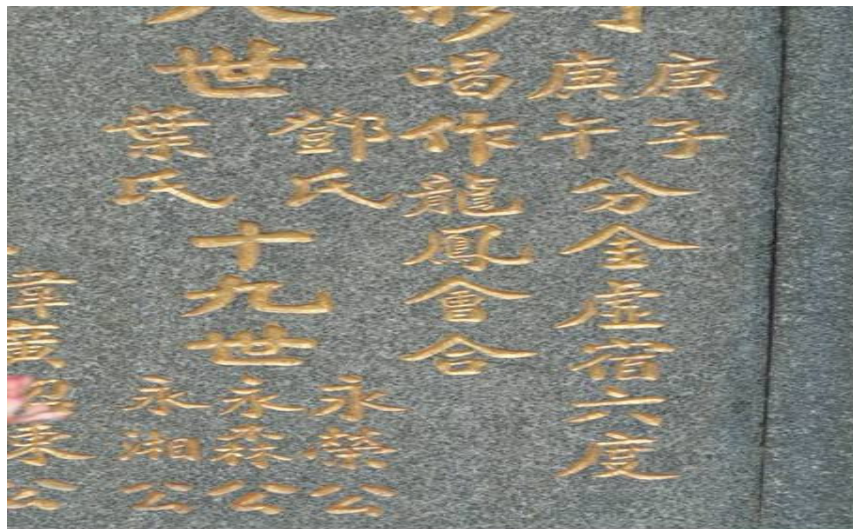 庚子
庚午
分金虛宿六度
形唱作龍鳳會合
世
鄧氏
葉氏
十九世
永榮公
永森公
永湘公
公